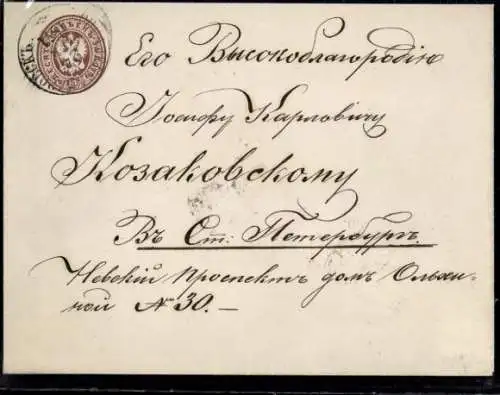 Его Высокоблагородію
Іосифу Карловичу
Козаковскому
Въ Ст: Петербургъ.
Невскій Проспектъ домъ Ольхи-
ной № 30. —